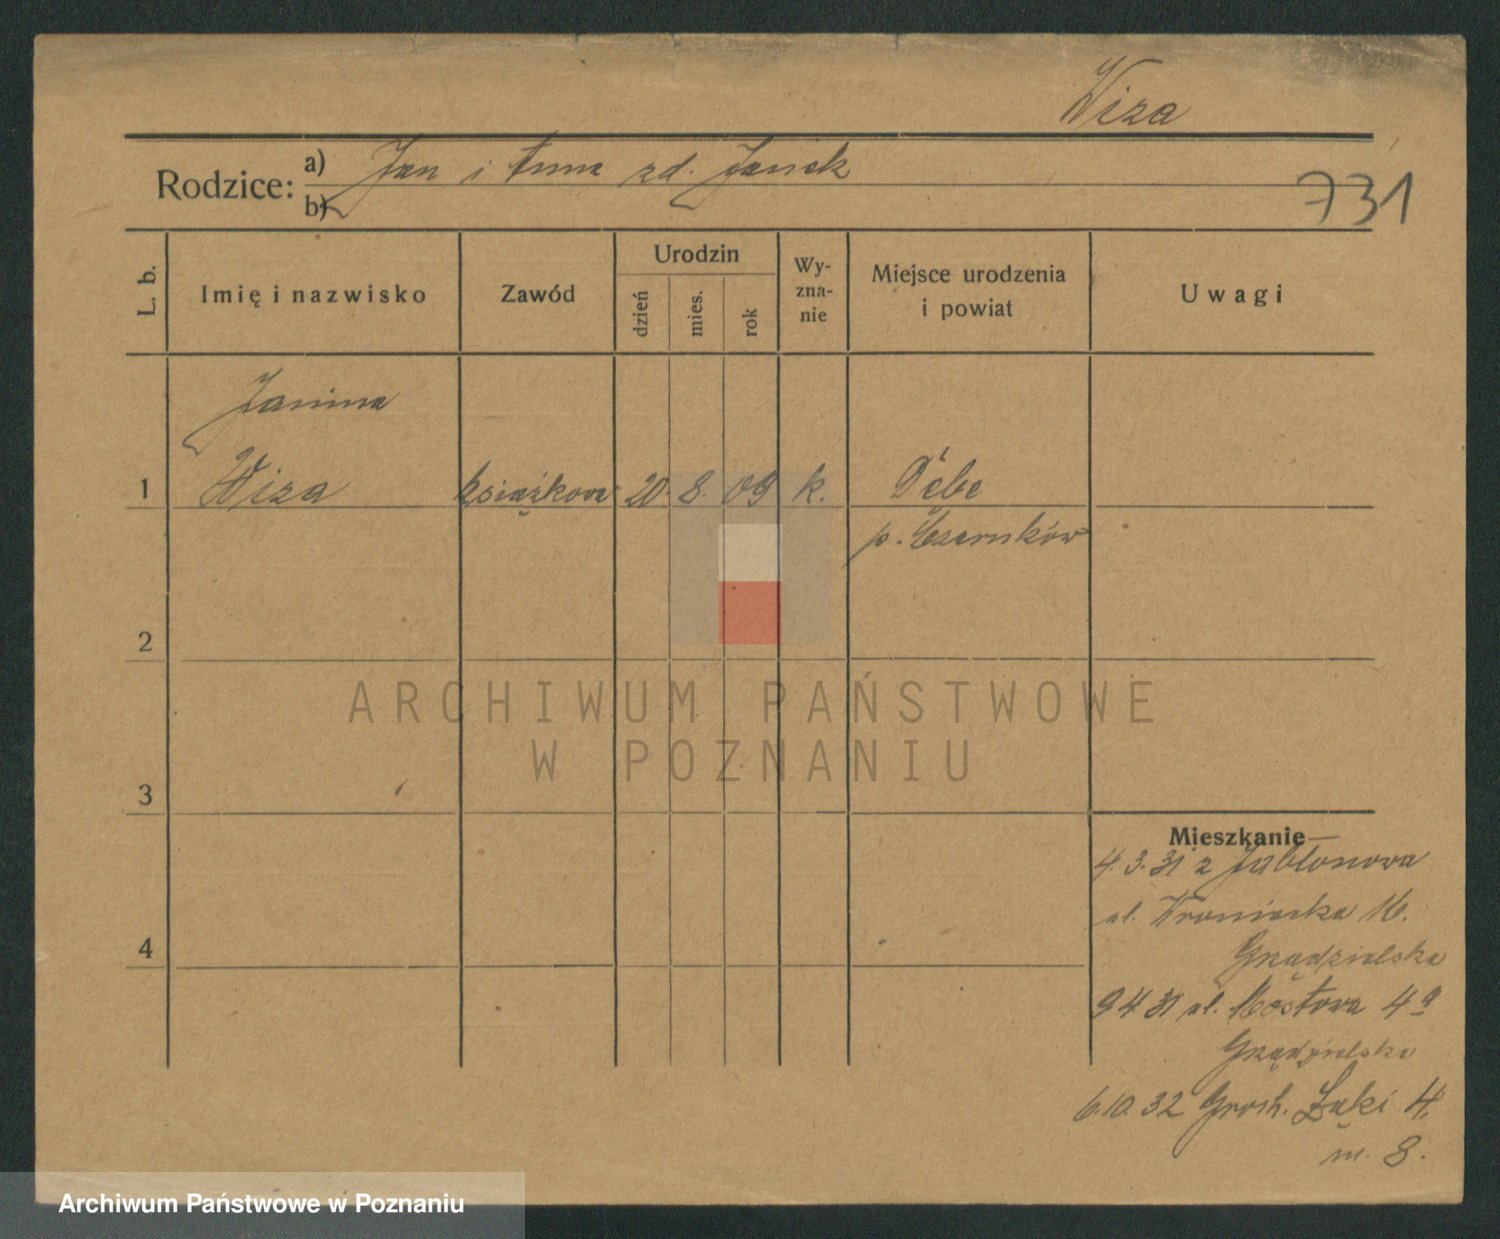 Wiza
Rodzice: a) Jan i Anna zd. Janek
b)
731
L. b.
Imię i nazwisko
Zawód
Urodzin
dzień
mies.
rok
Wy-
zna-
nie
Miejsce urodzenia
i powiat
Uwagi
Janina
1 Wiza książkowa 20. 8. 09 k. Dębe
p. Czarnków
2
3
4
Mieszkanie
4.3.31 z Jabłonowa
ul. Wroniecka 16.
Grządzielska
9 4 31 ul. Mostowa 4a
Grządzielska
6.10.32 Groch. Łąki 4.
m. 8.
ARCHIWUM PAŃSTWOWE
W POZNANIU
Archiwum Państwowe w Poznaniu